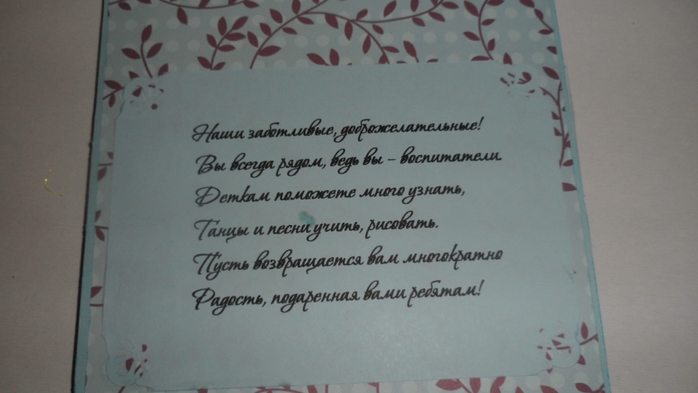 Наши заботливые, доброжелательные!
Вы всегда рядом, ведь вы – воспитатели.
Деткам поможете много узнать,
Танцы и песни учить, рисовать.
Пусть возвращается вам многократно
Радость, подаренная вами ребятам!